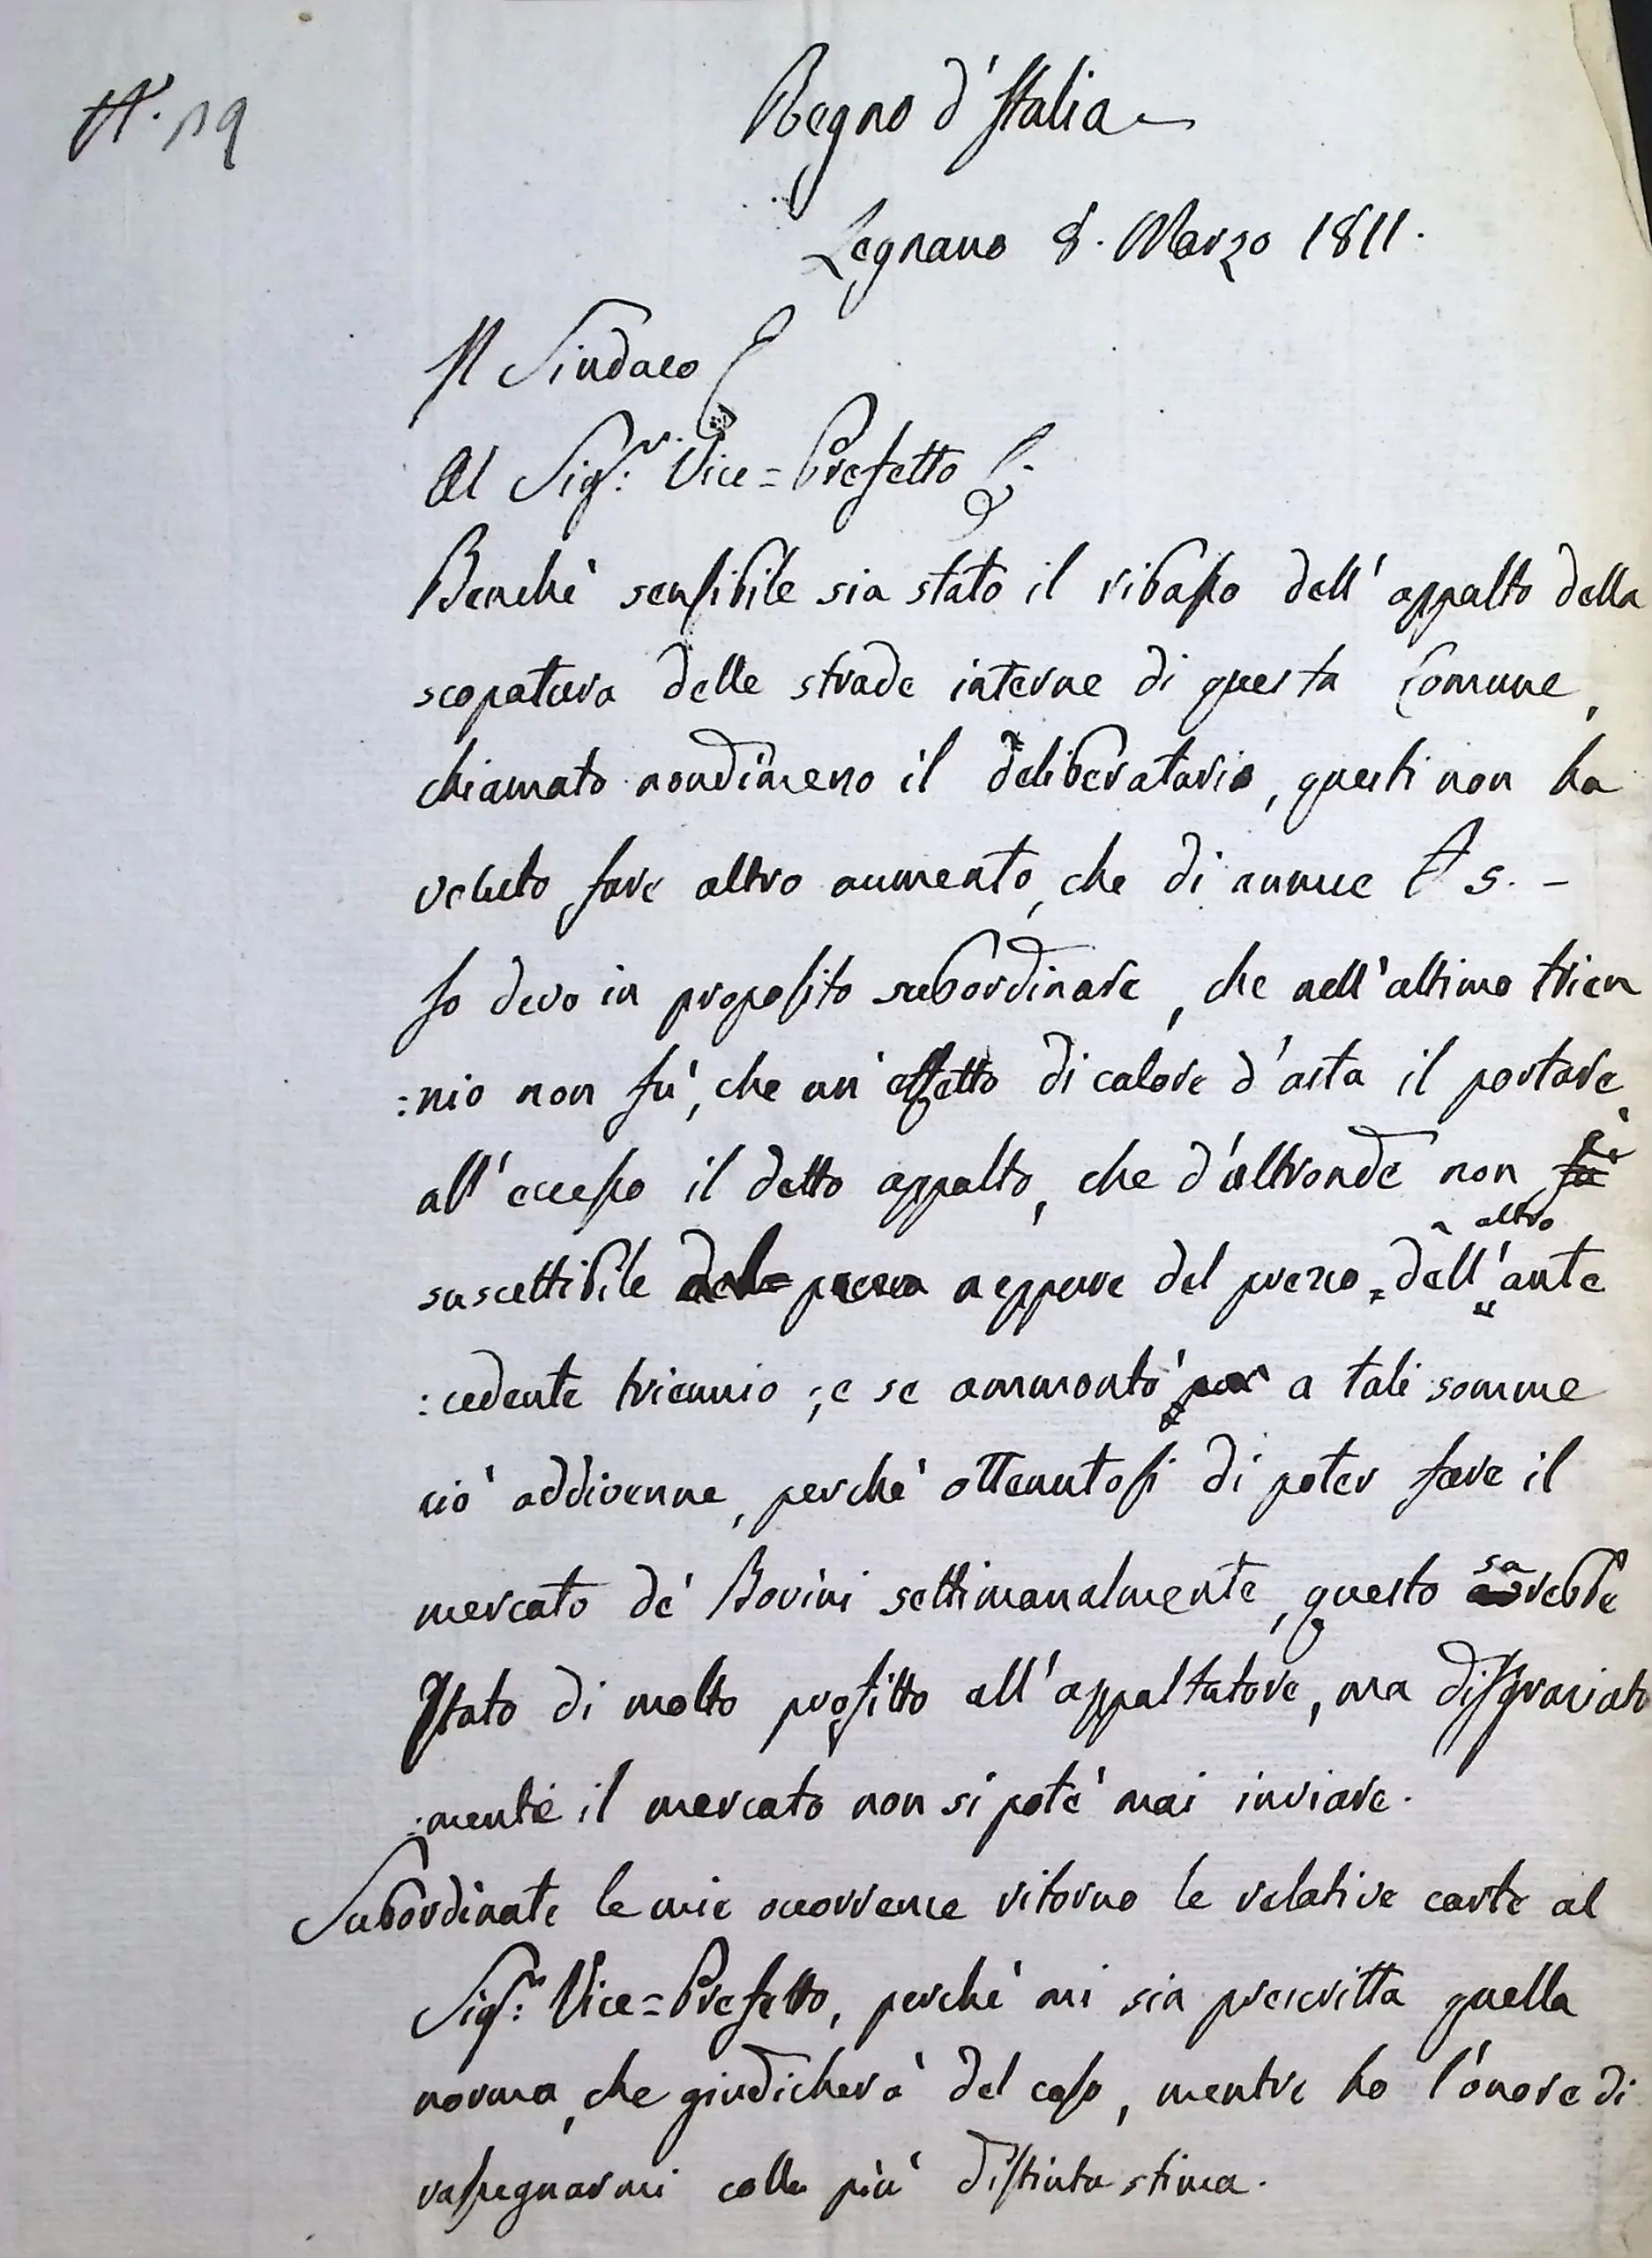 N.° 19
Regno d'Italia
Legnano 8. Marzo 1811.
Il Sindaco
Al Sig.r Vice=Prefetto
Benchè sensibile sia stato il ribasso dell'appalto della
scopatura delle strade interne di questa Comune,
chiamato nondimeno il deliberatario, questi non ha
voluto fare altro aumento, che di annue £ 5. -
Io devo in proposito subordinare, che nell'ultimo trien
:nio non fù, che un'effetto di calore d'asta il portare
all'eccesso il detto appalto, che d'altronde non è
suscettibile neppure del prezzo dell'altro ante
:cedente triennio; e se ammontò a tali somme
ciò addivenne, perchè ottenutosi di poter fare il
mercato de' Bovini settimanalmente, questo sarebbe
stato di molto profitto all'appaltatore, ma disgraziata
:mente il mercato non si potè mai inviare.
Subordinate le mie occorrenze ritorno le relative carte al
Sig.r Vice=Prefetto, perchè mi sia prescritta quella
norma, che giudicherà del caso, mentre ho l'onore di
rassegnarmi colla più distinta stima.